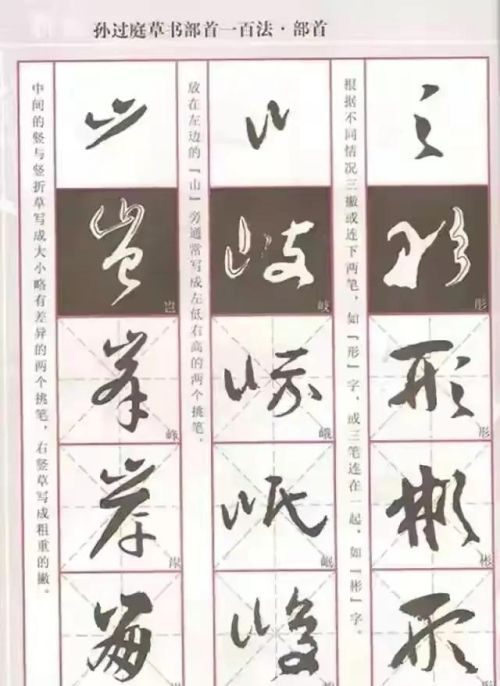 孙过庭草书部首一百法·部首
根据不同情况三撇或连下两笔，如『形』字，或三笔连在一起，如『彬』字。
彤
形
彬
形
放在左边的『山』旁通常写成左低右高的两个挑笔。
岐
峨
岷
中间的竖与竖折草写成大小略有差异的两个挑笔，右竖草写成粗重的撇。
岂
峰
岸